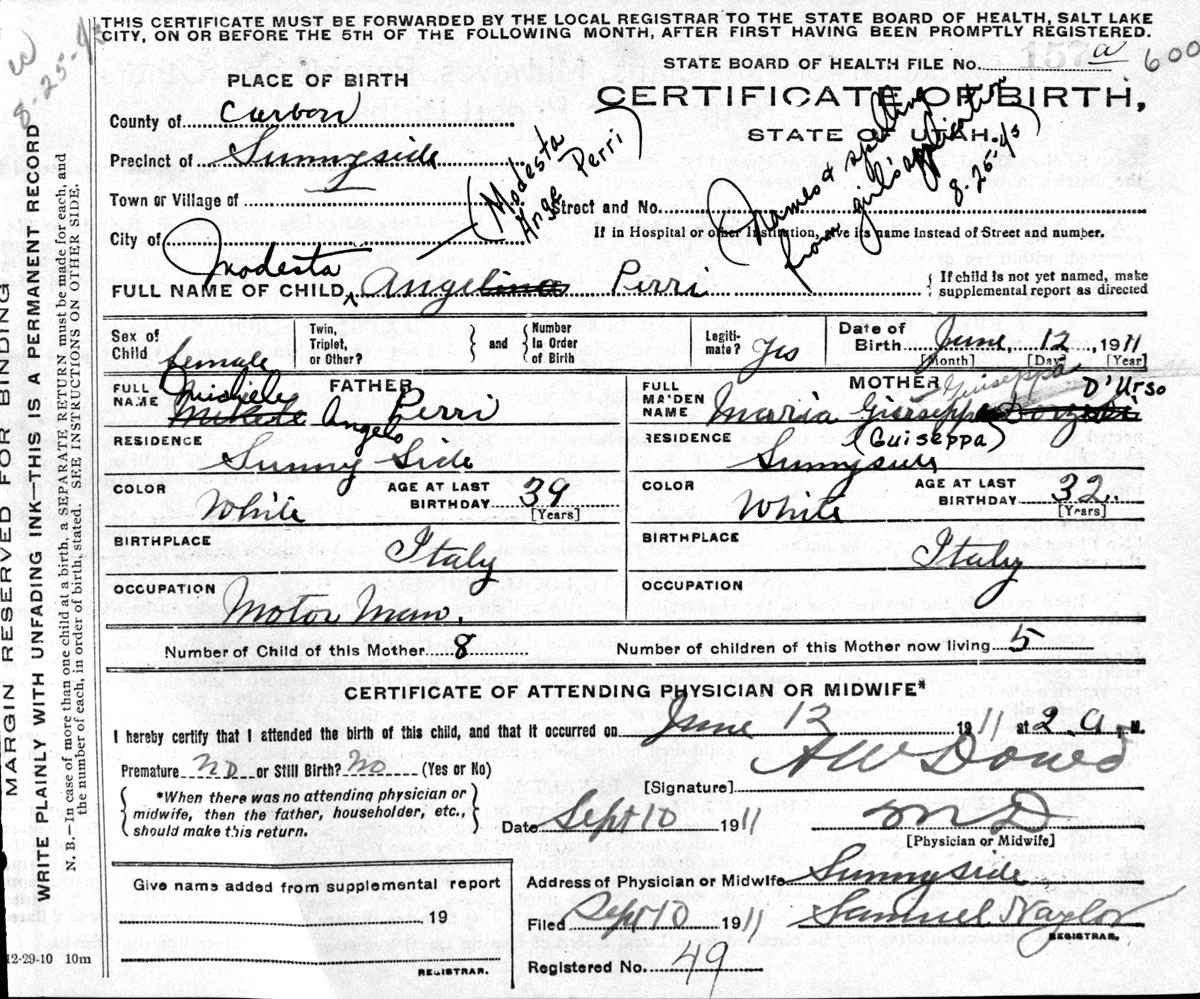 THIS CERTIFICATE MUST BE FORWARDED BY THE LOCAL REGISTRAR TO THE STATE BOARD OF HEALTH, SALT LAKE
CITY, ON OR BEFORE THE 5TH OF THE FOLLOWING MONTH, AFTER FIRST HAVING BEEN PROMPTLY REGISTERED.
8-25-43
MARGIN RESERVED FOR BINDING
WRITE PLAINLY WITH UNFADING INK—THIS IS A PERMANENT RECORD
N. B.—In case of more than one child at a birth, a SEPARATE RETURN must be made for each, and
the number of each, in order of birth, stated. SEE INSTRUCTIONS ON OTHER SIDE.
STATE BOARD OF HEALTH FILE No. a 600
PLACE OF BIRTH
CERTIFICATE OF BIRTH,
STATE OF UTAH.
County of Carbon
Precinct of Sunnyside
Town or Village of
(Modesta
Ange Perri)
Street and No.
(Names & spelling
from girl's application
8-25-43)
City of
If in Hospital or other Institution, give its name instead of Street and number.
Modesta
FULL NAME OF CHILD Angelina Perri
{ If child is not yet named, make
supplemental report as directed
Sex of Child female
Twin, Triplet, or Other?
and
Number In Order of Birth
Legiti- mate? Yes
Date of Birth June 12, 1911
[Month] [Day] [Year]
FATHER
FULL NAME Michele Angelo Perri
MOTHER
FULL MAIDEN NAME Maria Giuseppa D'Urso
Guiseppa
(Guiseppa)
RESIDENCE Sunny Side
RESIDENCE Sunnyside
COLOR White
AGE AT LAST BIRTHDAY 39
[Years]
COLOR White
AGE AT LAST BIRTHDAY 32
[Years]
BIRTHPLACE Italy
BIRTHPLACE Italy
OCCUPATION Motor Man.
OCCUPATION
Number of Child of this Mother 8
Number of children of this Mother now living 5
CERTIFICATE OF ATTENDING PHYSICIAN OR MIDWIFE*
I hereby certify that I attended the birth of this child, and that it occurred on June 12 1911 at 2 a. M.
Premature no or Still Birth? No (Yes or No)
[Signature] A W Dowd
{ *When there was no attending physician or
midwife, then the father, householder, etc.,
should make this return. }
Date Sept 10 1911
M D
[Physician or Midwife]
Give name added from supplemental report
19
REGISTRAR.
Address of Physician or Midwife Sunnyside
Filed Sept 10 1911 Samuel Naylor
REGISTRAR.
Registered No. 49
12-29-10 10m